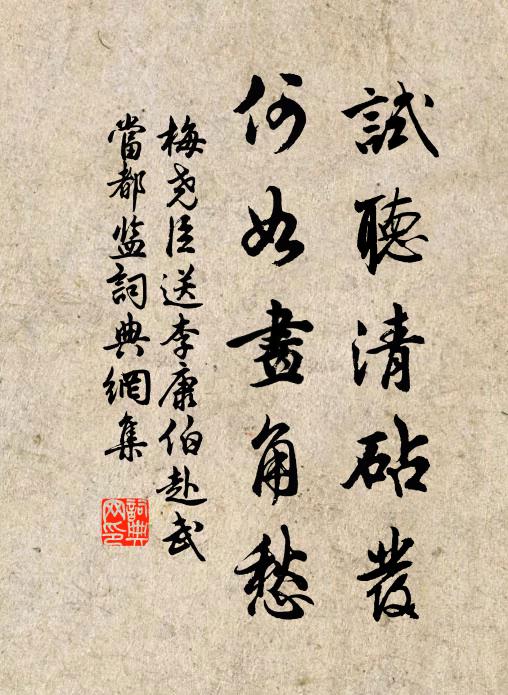 試聽清砧發
何如畫角愁
梅堯臣送李康伯赴武
當都监詞典網集
詞典网印